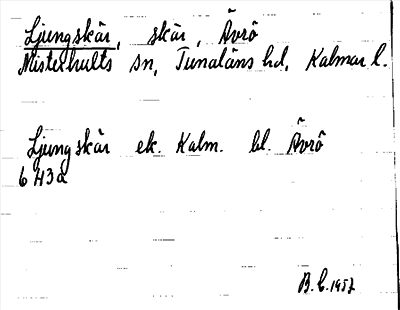 Ljungskär, skär, Ävrö
Misterhults sn, Tunaläns hd, Kalmar l.
Ljungskär ek. Kalm. bl. Ävrö
6 H3a
B. L. 1957